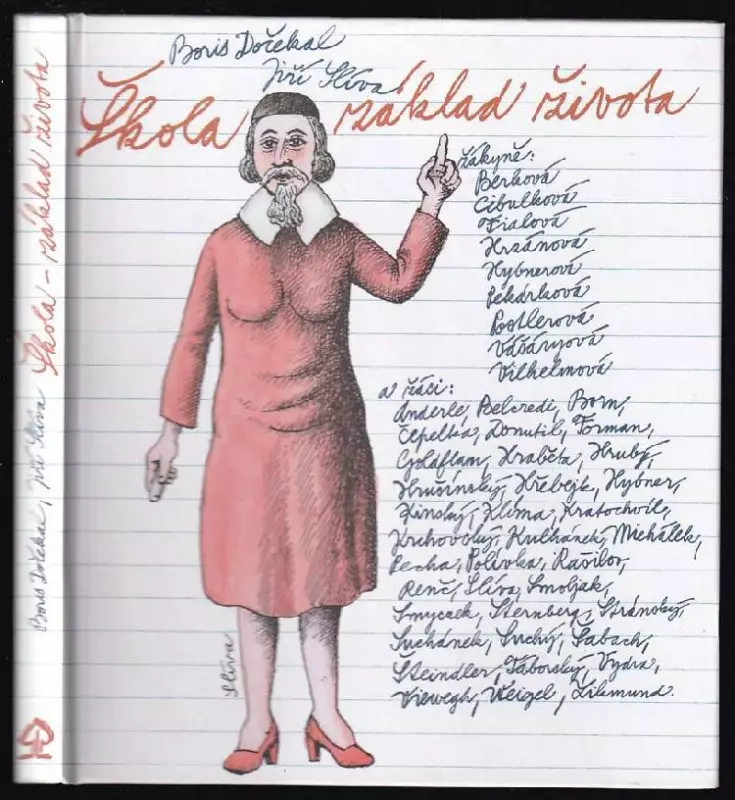 Boris Dočekal, Jiří Slíva Škola - základ života
Boris Dočekal
Jiří Slíva
Škola základ života
žákyně:
Berková
Cibulková
Fialová
Hrzánová
Hybnerová
Pekárková
Postlerová
Vášáryová
Vilhelmová
a žáci:
Anderle, Belcredi, Born,
Čepelka, Donutil, Forman,
Goldflam, Hraběta, Hrubý,
Hrušinský, Hřebejk, Hybner,
Kinský, Klíma, Kratochvil,
Krchovský, Kulhánek, Michálek,
Pecha, Polívka, Rašilov,
Renč, Slíva, Smoljak,
Smyczek, Sternberg, Stránský,
Suchánek, Suchý, Šabach,
Šteindler, Táborský, Vydra,
Viewegh, Weigel, Zikmund.
Slíva